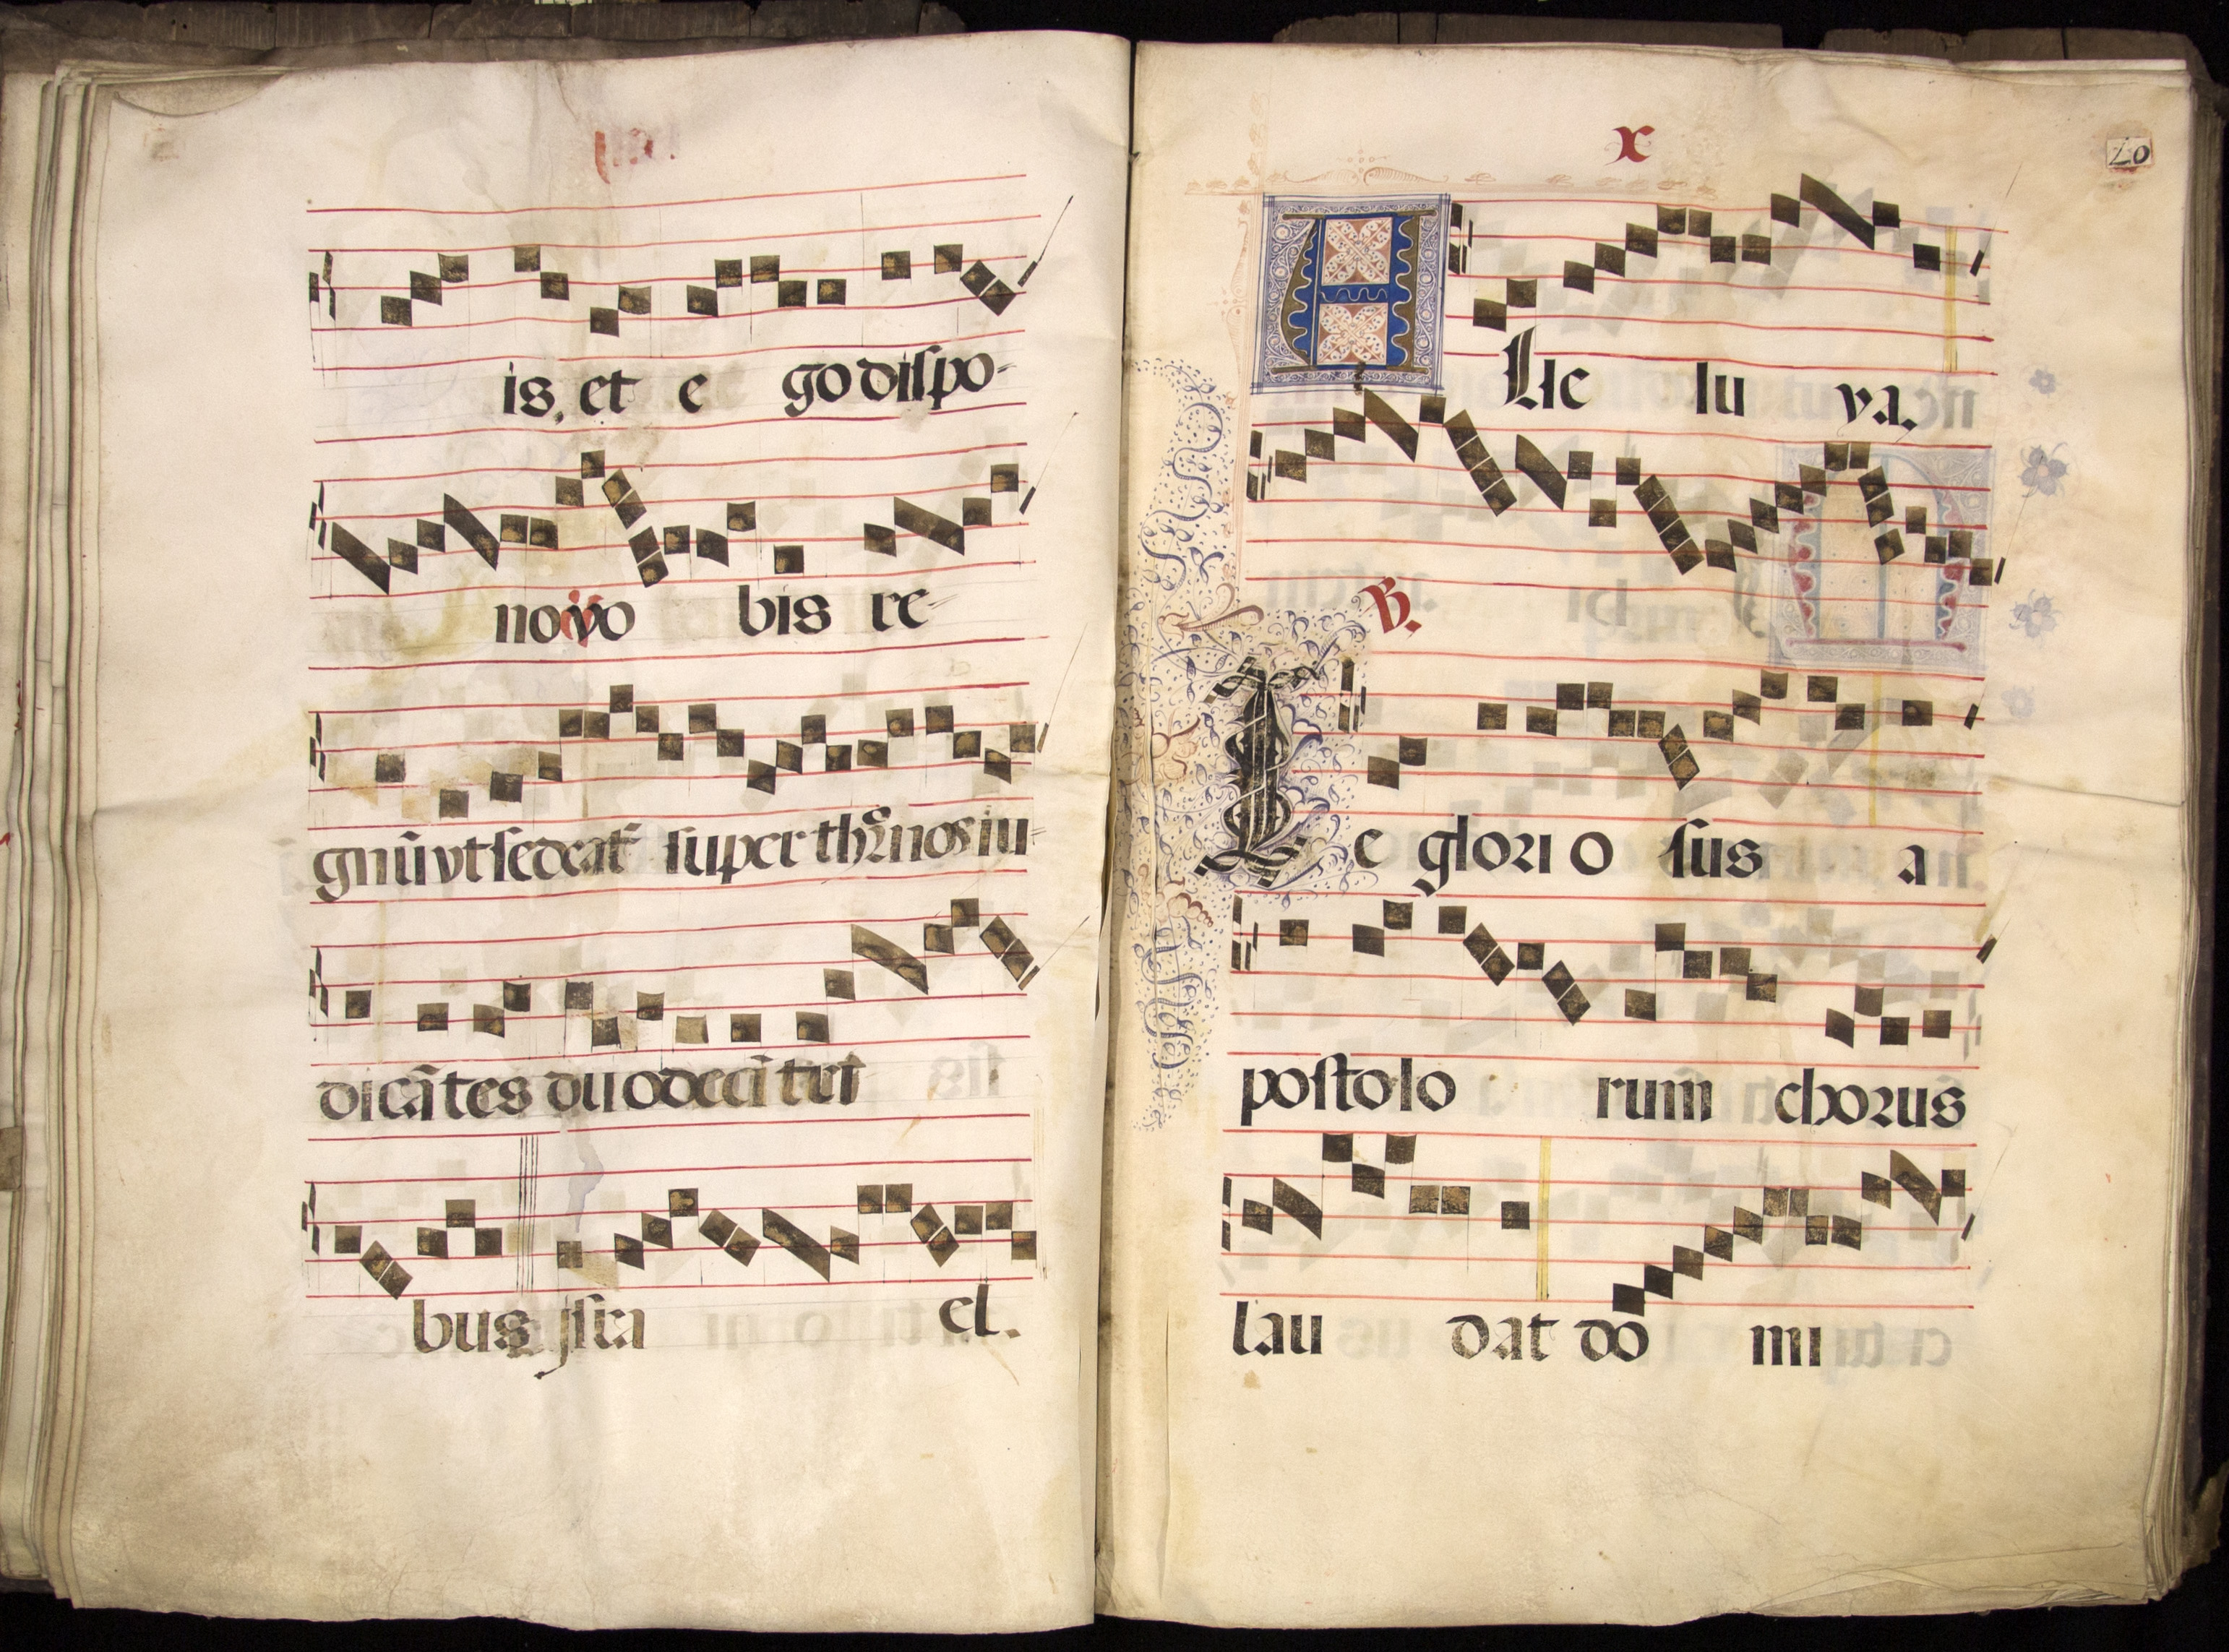 is, et e go dispo-
no vo bis re-
gnũ vt sedeat̃ super thrºnos iu-
dicãtes duodecĩ tri
bus jsra el.
x
20
A lle lu ya.
℣.
Te glori o sus a
postolo rum chorus
lau dat do mi